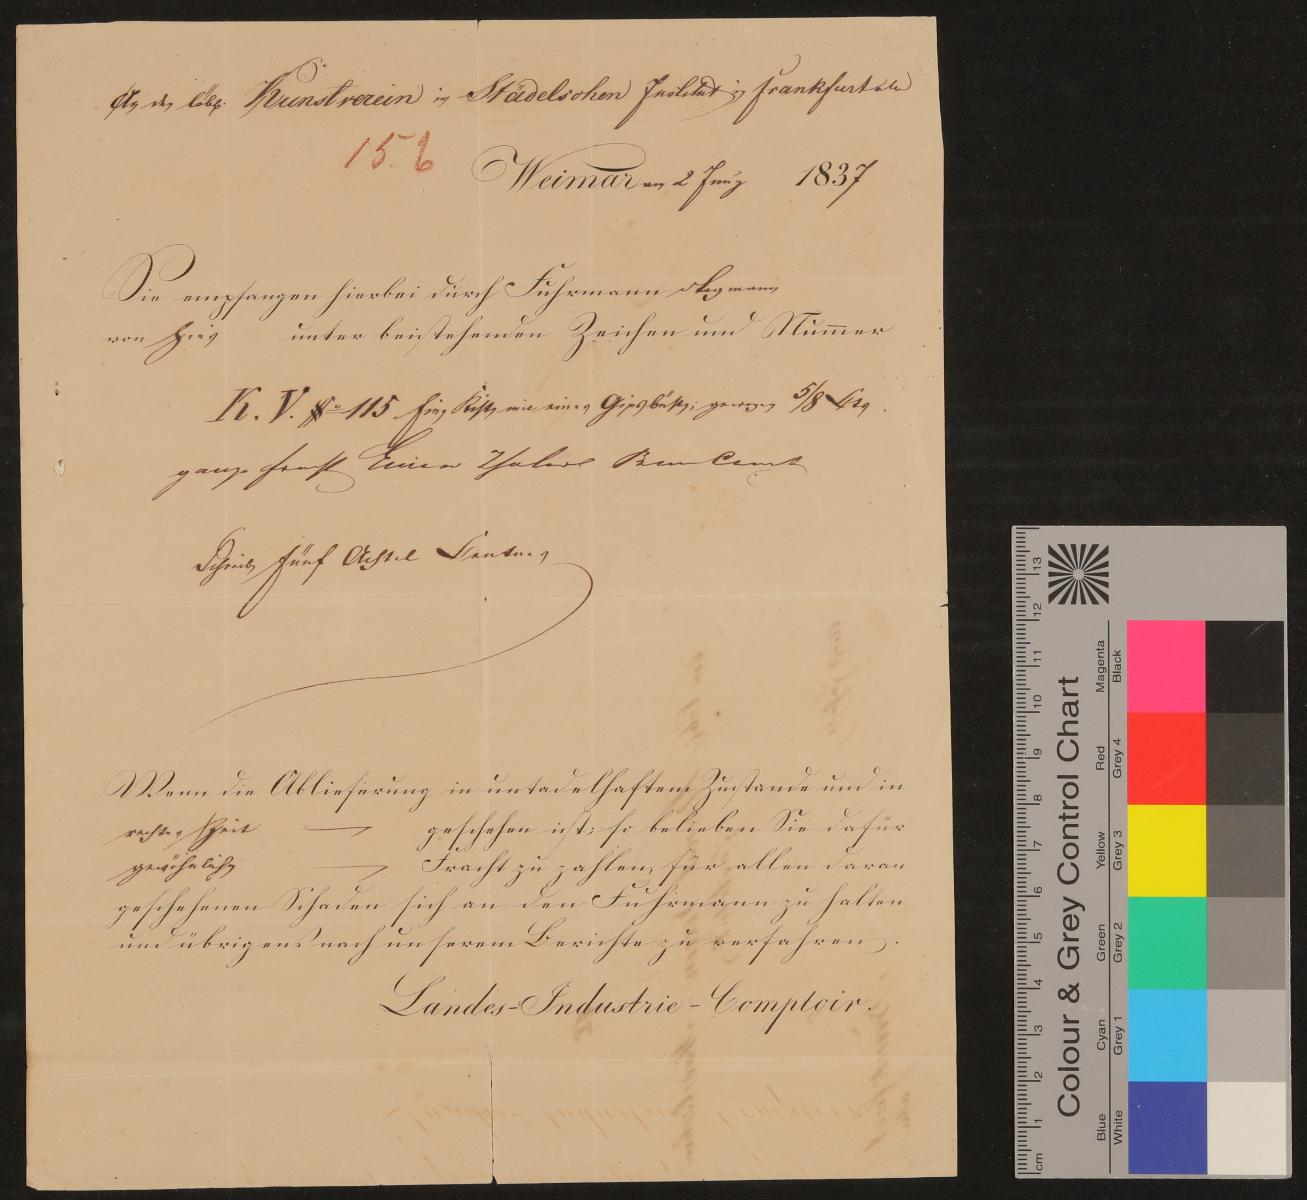 An den löbl. Kunstverein im Städelschen Institut in Frankfurt a/M
156
Weimar am 2 Juny 1837
Sie empfangen hierbei durch Fuhrmann
von hier unter beistehenden Zeichen und Nummer
K. V. No 115 Eine Kiste mit einer Gipsbüste, gewogen 5/8 Ctr.
ganze Fracht Einen Thaler
Schreibe fünf Achtel Centner
Wenn die Ablieferung in untadelhaftem Zustande und in
rechter Zeit geschehen ist; so belieben Sie dafür
gewöhnliche Fracht zu zahlen, für allen daran
geschehenen Schaden sich an den Fuhrmann zu halten
und übrigens nach unserem Berichte zu verfahren.
Landes-Industrie-Comptoir.
Colour & Grey Control Chart
Blue Cyan Green Yellow Red Magenta
White Grey 1 Grey 2 Grey 3 Grey 4 Black
cm 1 2 3 4 5 6 7 8 9 10 11 12 13